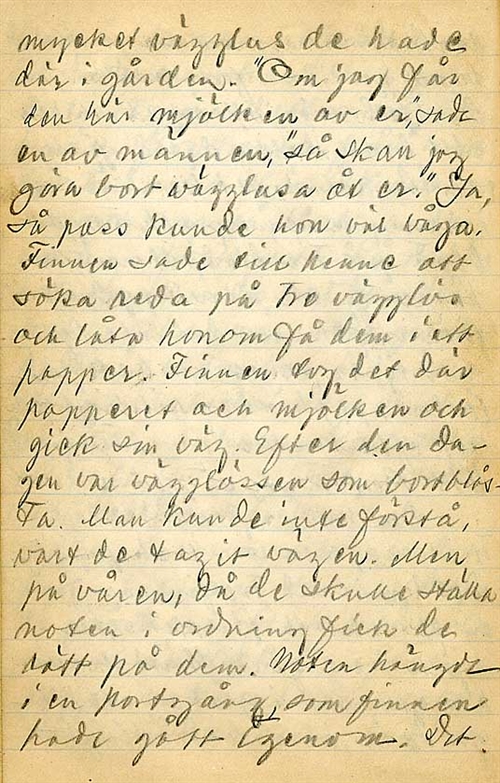 mycket vägglus de hade
där i gården. "Om jag får
den här mjölken av er," sade
en av männen, "så skall jag
göra bort vägglusa åt er." Ja,
så pass kunde hon väl våga.
Finnen sade till henne att
söka reda på tre vägglös
och låta honom få dem i ett
papper. Finnen tog det där
papperet och mjölken och
gick sin väg. Efter den da-
gen var vägglössen som bortblås-
ta. Man kunde inte förstå,
vart de tagit vägen. Men
på våren, då de skulle ställa
noten i ordning fick de
rätt på dem. Noten hängde
i en portgång, som finnen
hade gått igenom. Det